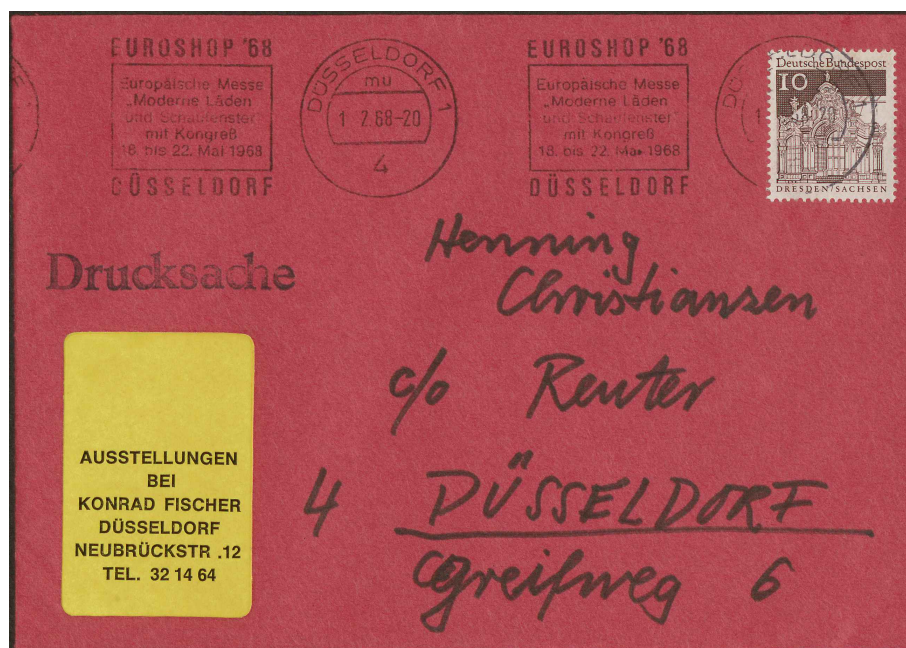 EUROSHOP '68
Europäische Messe
„Moderne Läden
und Schaufenster"
mit Kongreß
18. bis 22. Mai 1968
DÜSSELDORF
DÜSSELDORF 1
mu
1 2.68-20
4
EUROSHOP '68
Europäische Messe
„Moderne Läden
und Schaufenster"
mit Kongreß
18. bis 22. Mai 1968
DÜSSELDORF
Deutsche Bundespost
10
DRESDEN/SACHSEN
Drucksache
Henning
Christiansen
c/o Reuter
4 DÜSSELDORF
Greifweg 6
AUSSTELLUNGEN
BEI
KONRAD FISCHER
DÜSSELDORF
NEUBRÜCKSTR .12
TEL. 32 14 64